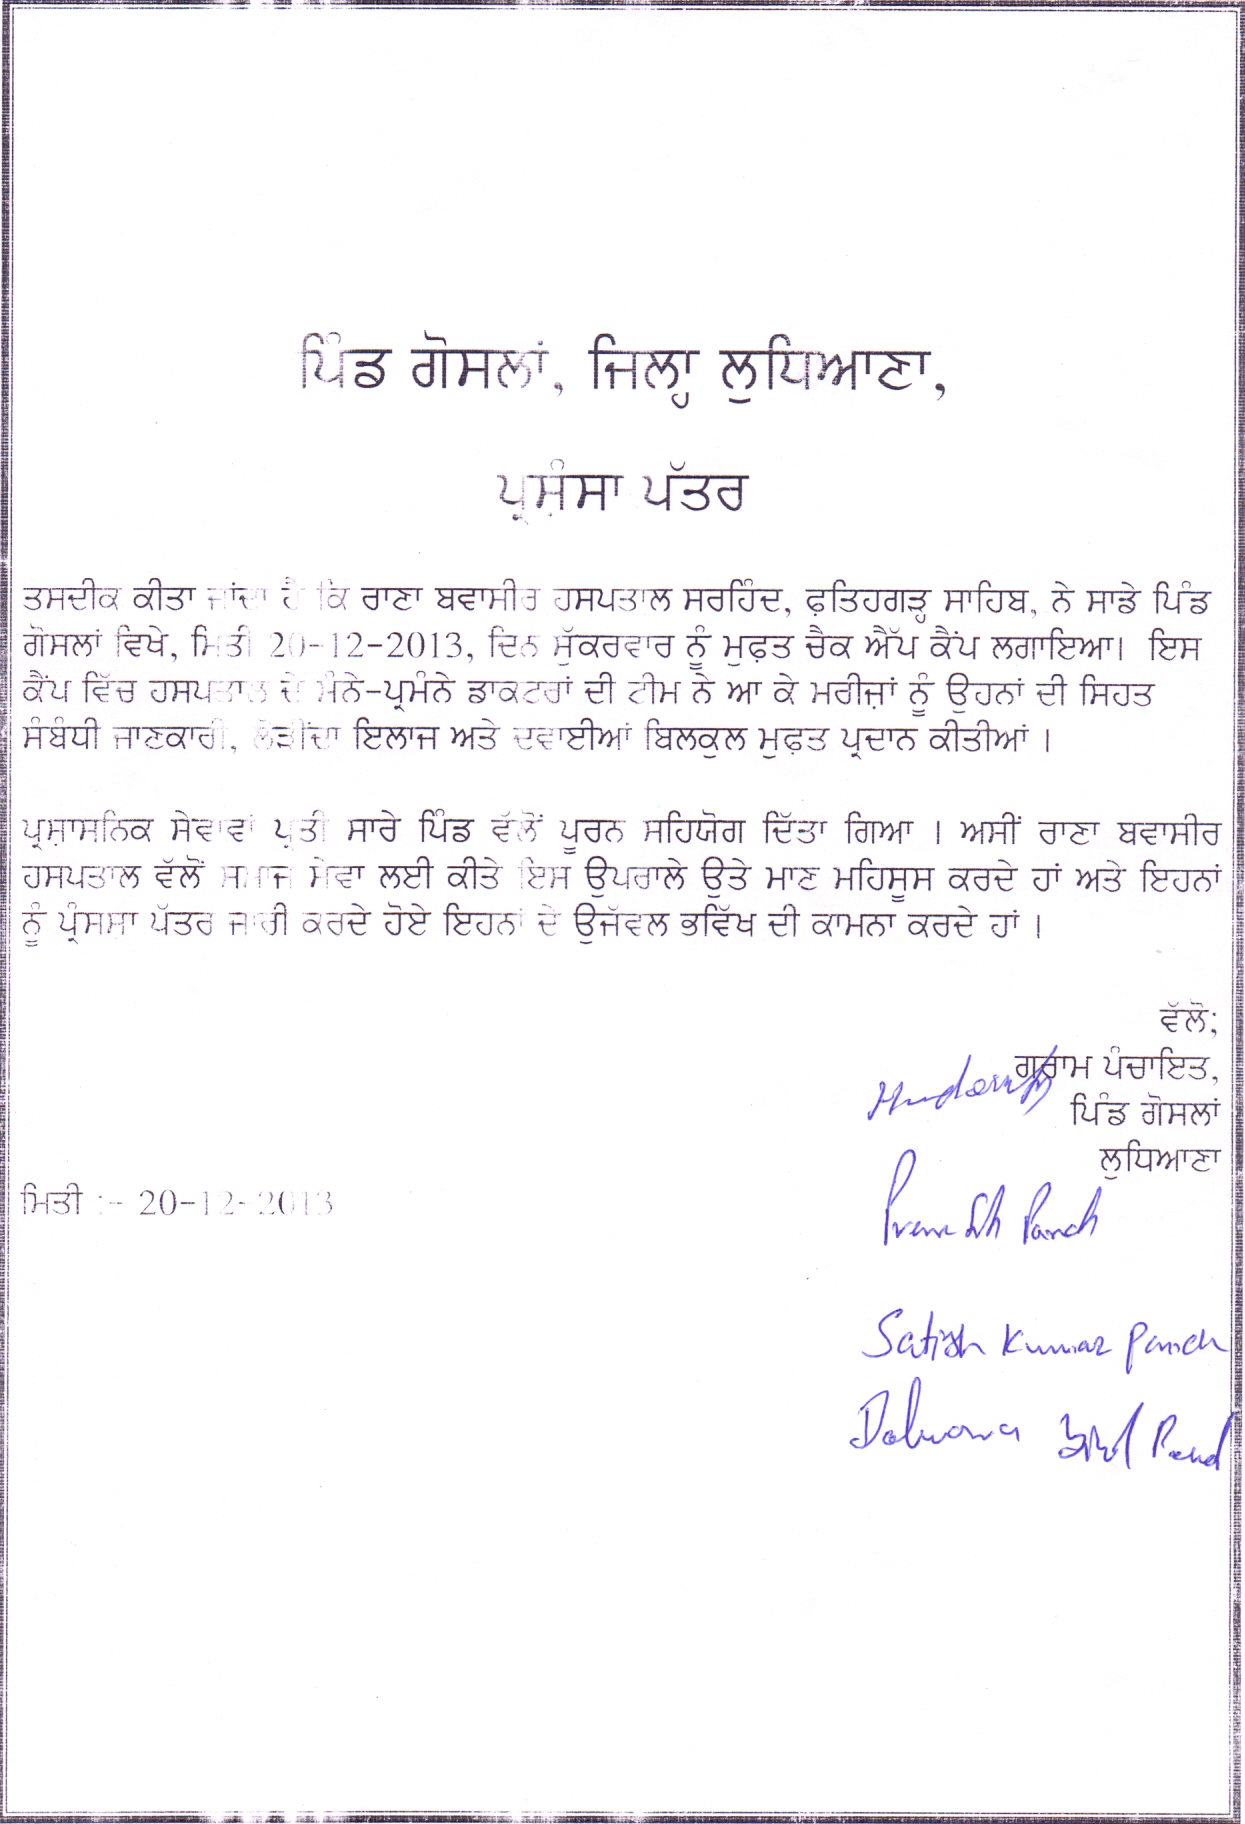 ਪਿੰਡ ਗੋਸਲਾਂ, ਜਿਲ੍ਹਾ ਲੁਧਿਆਣਾ,
ਪ੍ਰਸ਼ੰਸਾ ਪੱਤਰ
ਤਸਦੀਕ ਕੀਤਾ ਜਾਂਦਾ ਹੈ ਕਿ ਰਾਣਾ ਬਵਾਸੀਰ ਹਸਪਤਾਲ ਸਰਹਿੰਦ, ਫ਼ਤਿਹਗੜ੍ਹ ਸਾਹਿਬ, ਨੇ ਸਾਡੇ ਪਿੰਡ
ਗੋਸਲਾਂ ਵਿਖੇ, ਮਿਤੀ 20-12-2013, ਦਿਨ ਸ਼ੁੱਕਰਵਾਰ ਨੂੰ ਮੁਫ਼ਤ ਚੈਕ ਐੱਪ ਕੈਂਪ ਲਗਾਇਆ। ਇਸ
ਕੈਂਪ ਵਿੱਚ ਹਸਪਤਾਲ ਦੇ ਮੰਨੇ-ਪ੍ਰਮੰਨੇ ਡਾਕਟਰਾਂ ਦੀ ਟੀਮ ਨੇ ਆ ਕੇ ਮਰੀਜ਼ਾਂ ਨੂੰ ਉਹਨਾਂ ਦੀ ਸਿਹਤ
ਸੰਬੰਧੀ ਜਾਣਕਾਰੀ, ਲੋੜੀਂਦਾ ਇਲਾਜ ਅਤੇ ਦਵਾਈਆਂ ਬਿਲਕੁਲ ਮੁਫ਼ਤ ਪ੍ਰਦਾਨ ਕੀਤੀਆਂ ।
ਪ੍ਰਸ਼ਾਸਨਿਕ ਸੇਵਾਵਾਂ ਪ੍ਰਤੀ ਸਾਰੇ ਪਿੰਡ ਵੱਲੋਂ ਪੂਰਨ ਸਹਿਯੋਗ ਦਿੱਤਾ ਗਿਆ । ਅਸੀਂ ਰਾਣਾ ਬਵਾਸੀਰ
ਹਸਪਤਾਲ ਵੱਲੋਂ ਸਮਾਜ ਸੇਵਾ ਲਈ ਕੀਤੇ ਇਸ ਉਪਰਾਲੇ ਉਤੇ ਮਾਣ ਮਹਿਸੂਸ ਕਰਦੇ ਹਾਂ ਅਤੇ ਇਹਨਾਂ
ਨੂੰ ਪ੍ਰੰਸਸ਼ਾ ਪੱਤਰ ਜਾਰੀ ਕਰਦੇ ਹੋਏ ਇਹਨਾਂ ਦੇ ਉਜੱਵਲ ਭਵਿੱਖ ਦੀ ਕਾਮਨਾ ਕਰਦੇ ਹਾਂ ।
ਵੱਲੋ;
ਗ੍ਰਾਮ ਪੰਚਾਇਤ,
ਪਿੰਡ ਗੋਸਲਾਂ
ਲੁਧਿਆਣਾ
ਮਿਤੀ :- 20-12-2013
Prem Panch
Satish Kumar Panch